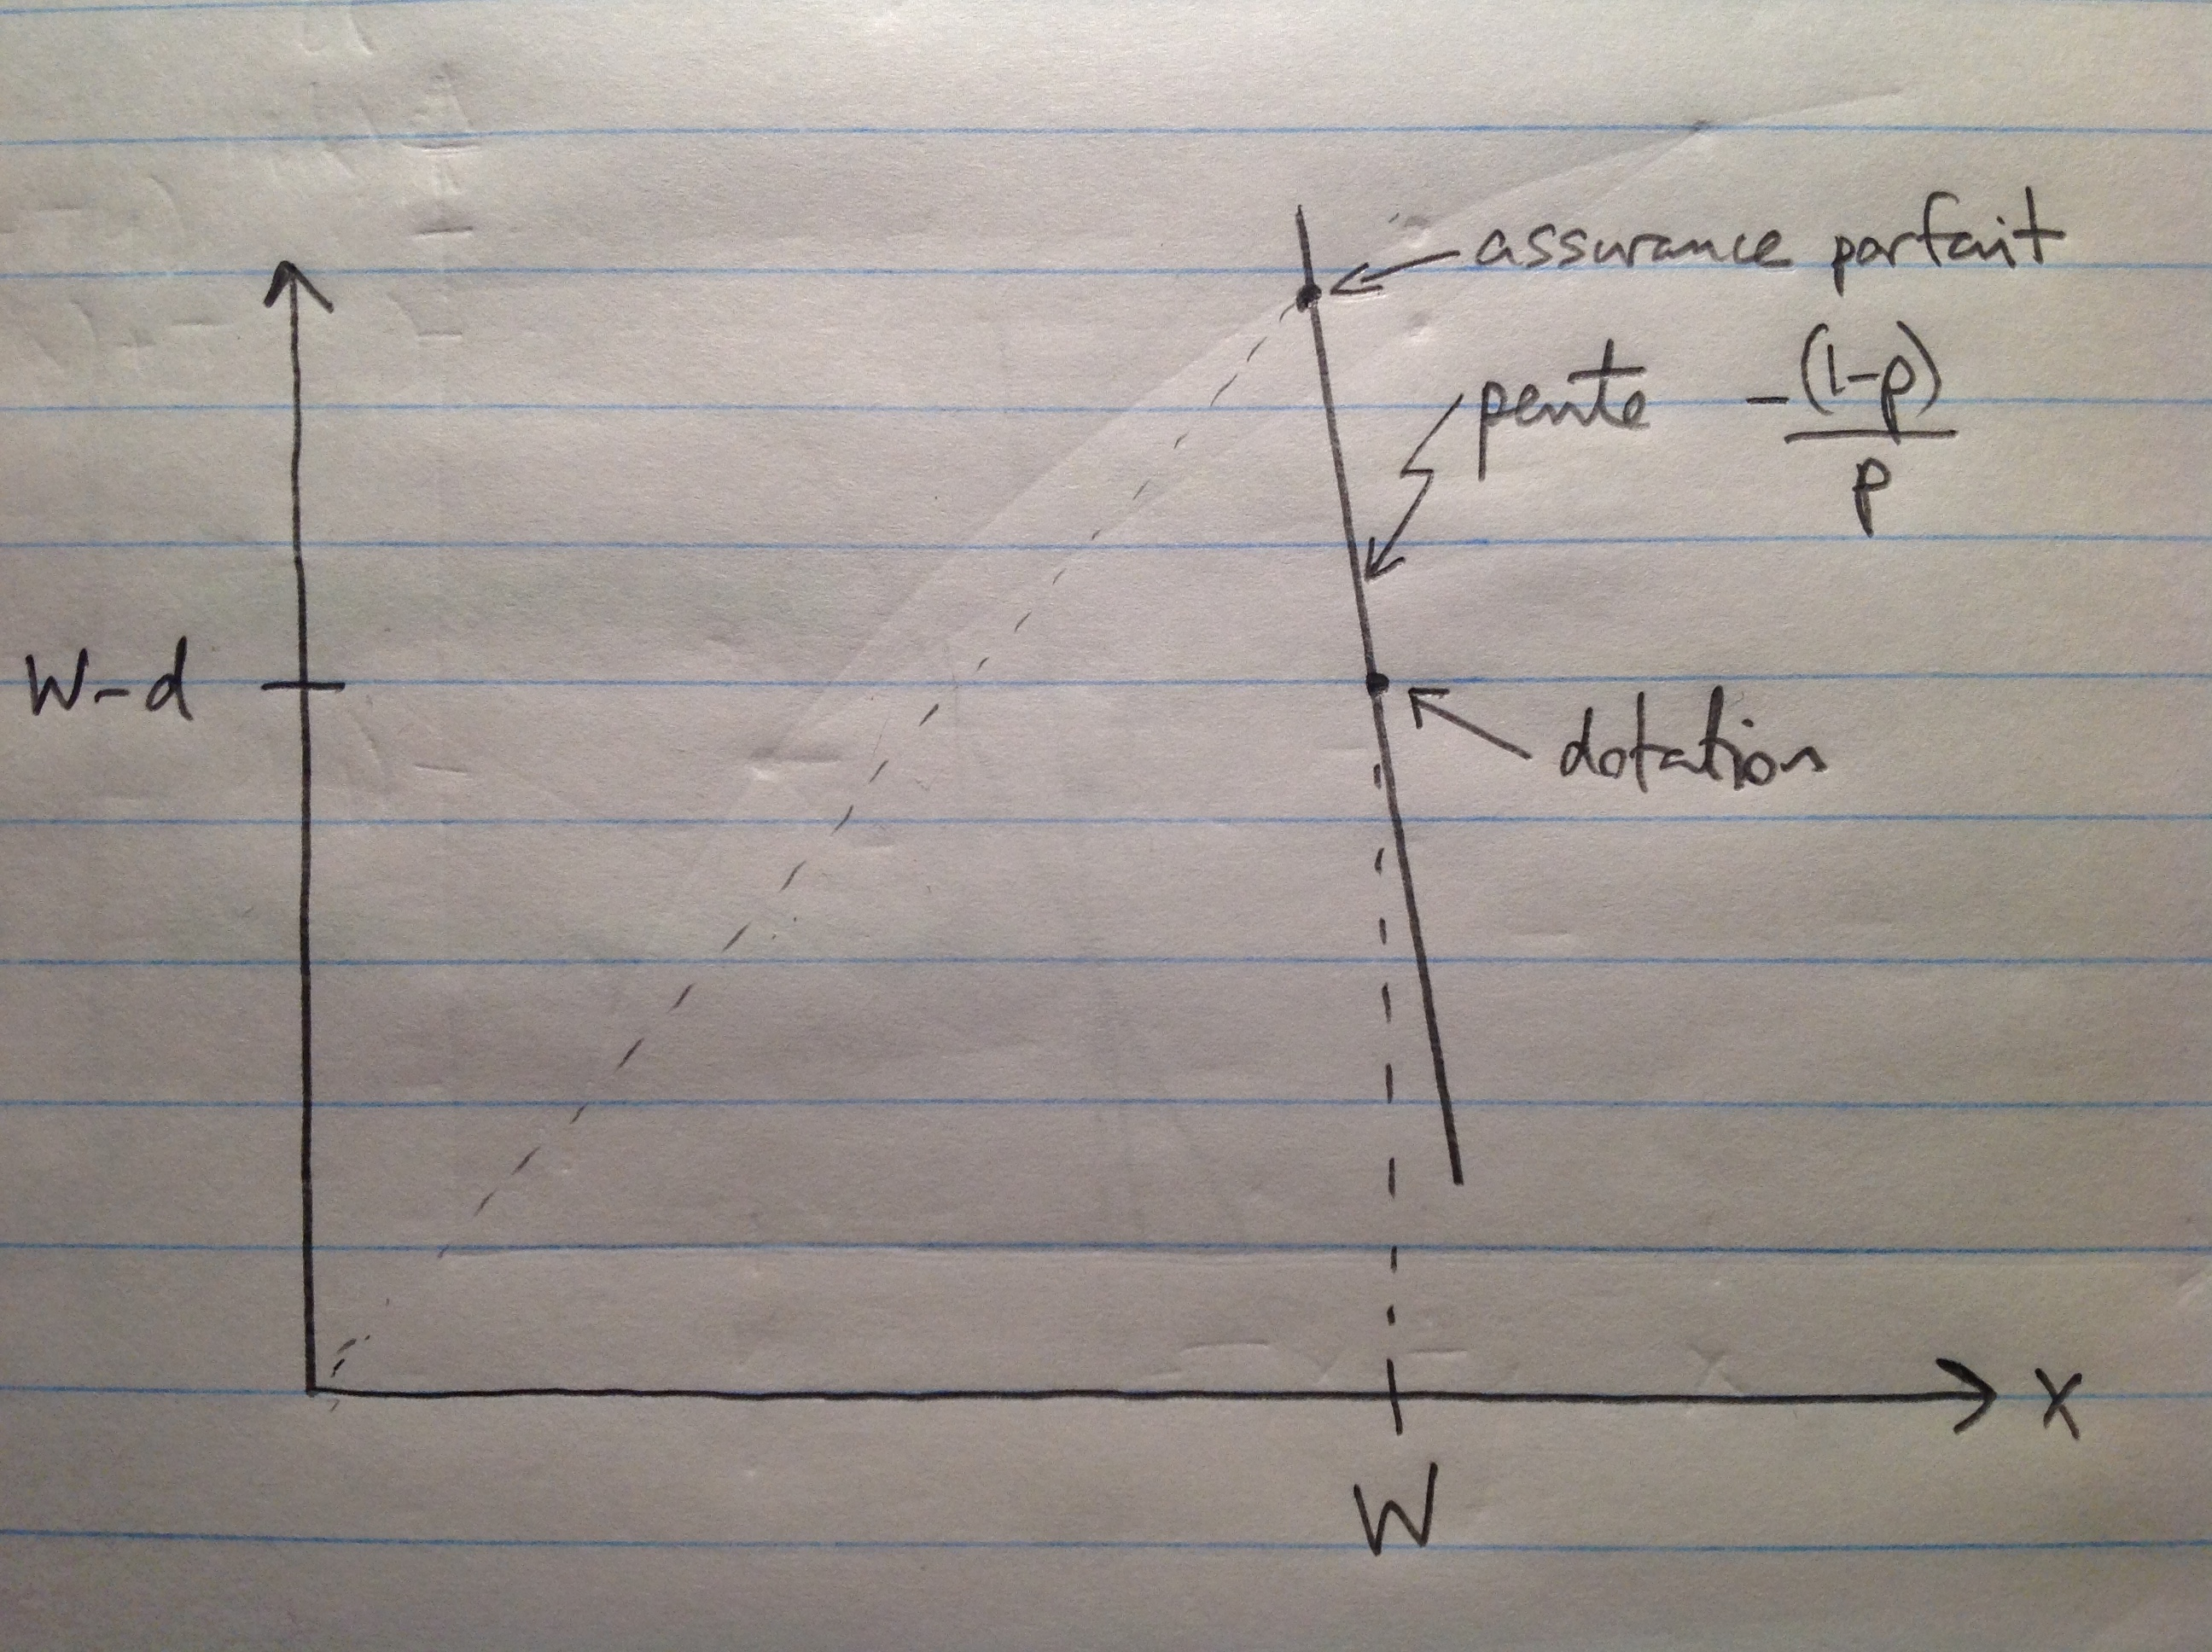 assurance parfait
pente -(1-p)/p
W-d
dotation
X
W